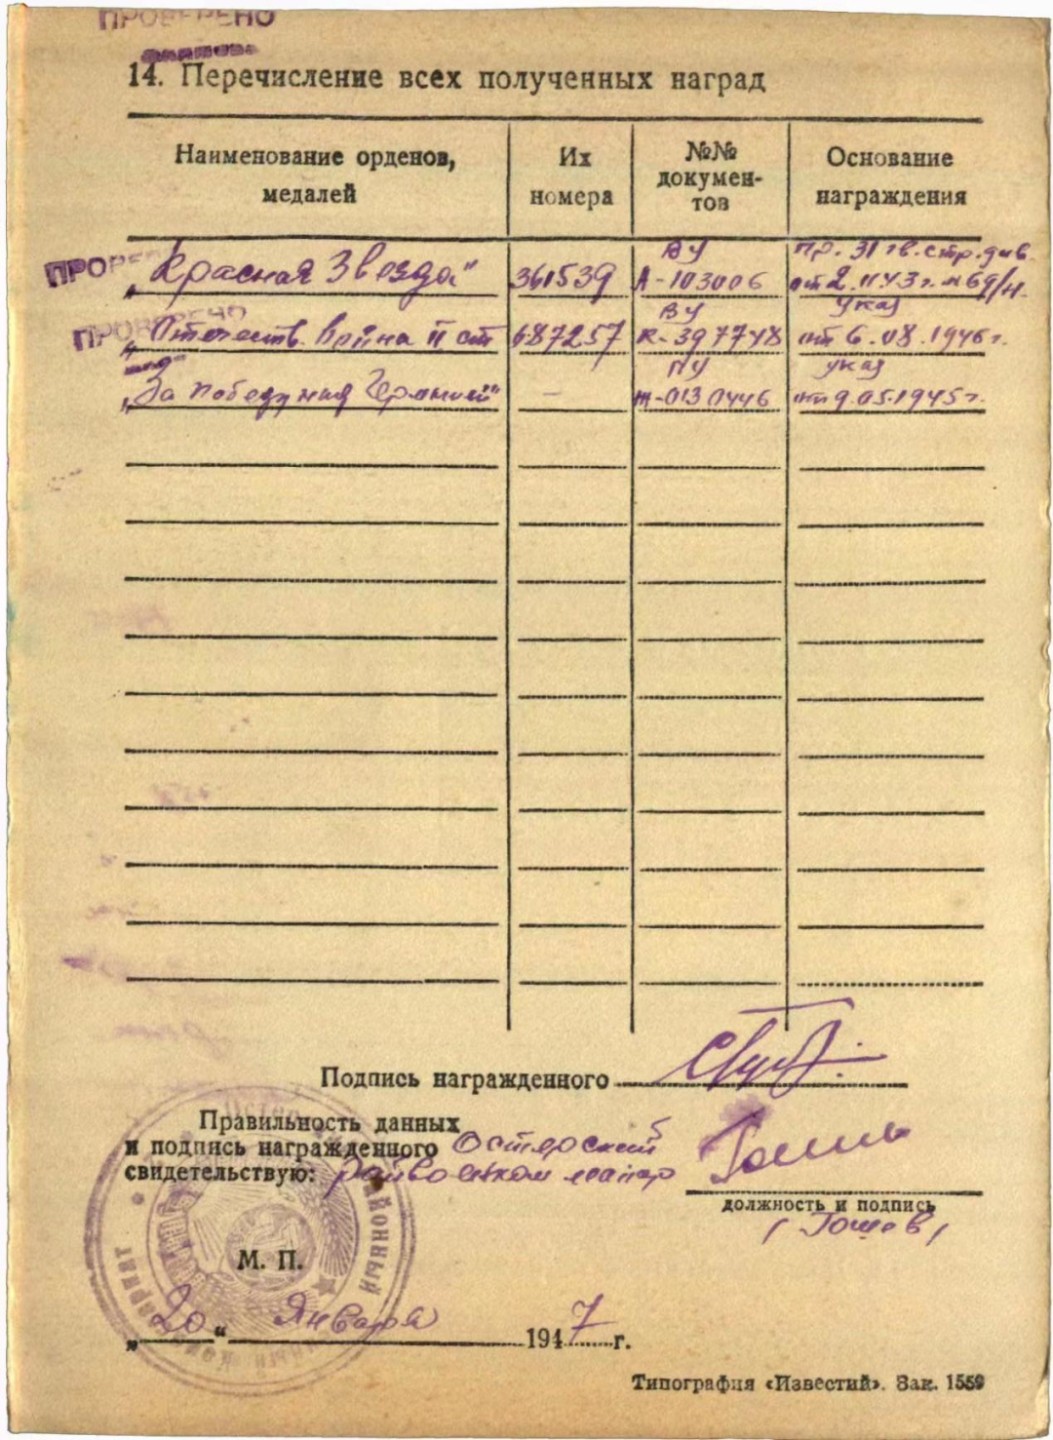 ПРОВЕРЕНО
14. Перечисление всех полученных наград
Наименование орденов, медалей
Их номера
№№ документов
Основание награждения
ПРОВЕ
„Красная Звезда" 361539 ВУ А-103006 Пр. 31 гв. стр. див. от 2.11.43 г. №69/н.
ПРОВЕРЕНО
„Отечеств. Война II ст 687257 ВУ К-397748 указ от 6.08.1946 г.
„За победу над Германией" — ПУ Ж-0130446 указ от 9.05.1945 г.
Подпись награжденного
Правильность данных
и подпись награжденного Остерский
свидетельствую: райвоенком
должность и подпись
(Гошев)
М. П.
„20" Января 1947 г.
Типография «Известий». Зак. 1559